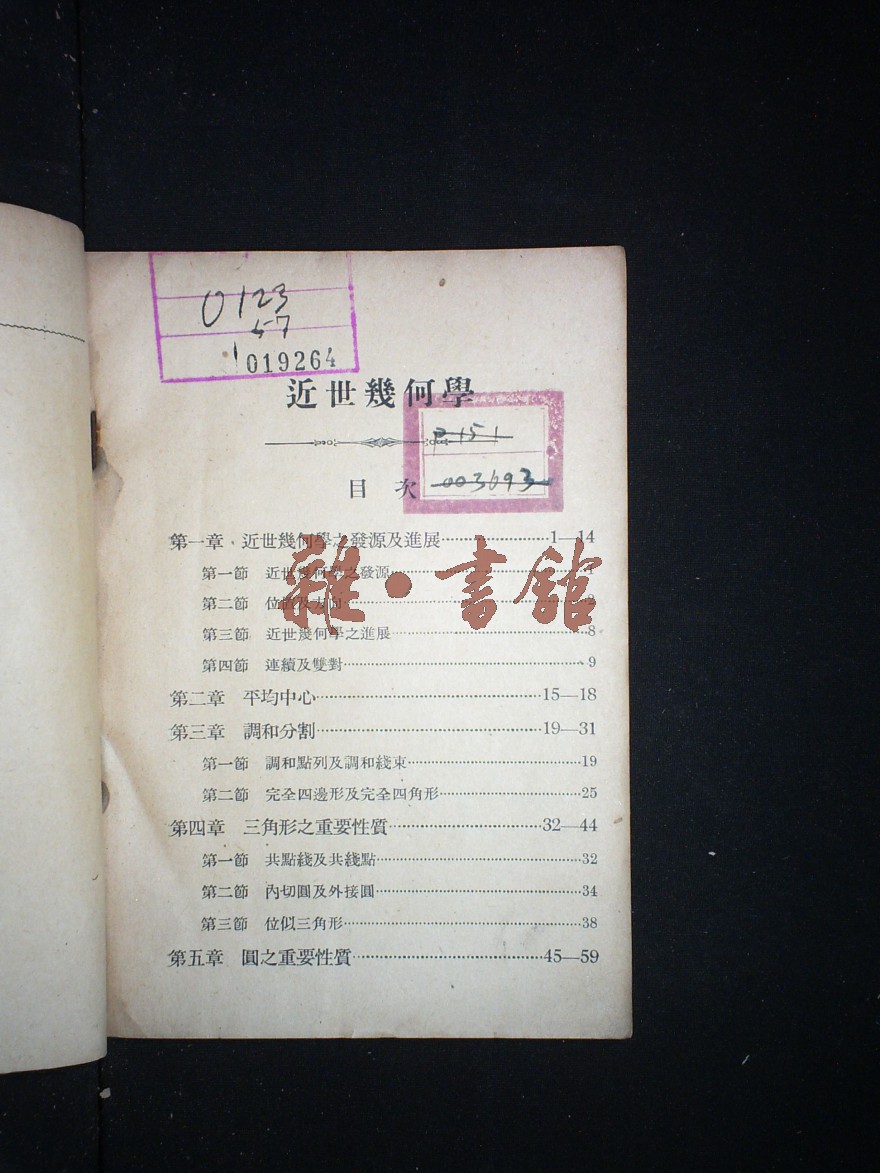 0123
57
019264
近世幾何學
P151
003693
目次
第一章 近世幾何學之發源及進展……1—14
第一節 近世幾何學之發源……1
第二節 位置及方向……2
第三節 近世幾何學之進展……8
第四節 連續及雙對……9
第二章 平均中心……15—18
第三章 調和分割……19—31
第一節 調和點列及調和綫束……19
第二節 完全四邊形及完全四角形……25
第四章 三角形之重要性質……32—44
第一節 共點綫及共綫點……32
第二節 內切圓及外接圓……34
第三節 位似三角形……38
第五章 圓之重要性質……45—59
雜·書館